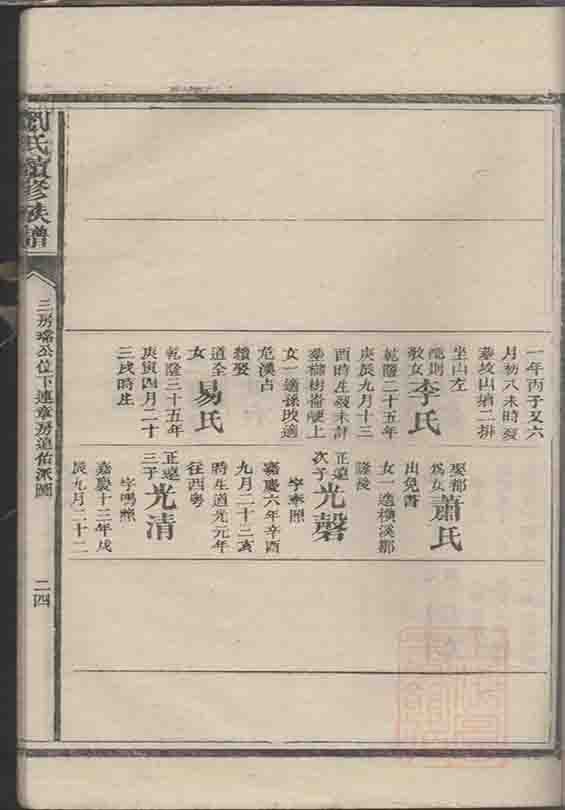 劉氏續修族譜
三房瑺公位下連章房道佑派圖
二四
一年丙子又六
月初八未時歿
葬坟山塘二排
坐山左
龍則
敎女李氏
乾隆二十五年
庚辰九月十三
酉時生歿未詳
葬櫧樹崙硬上
女一適孫玫適
危漢占
續娶
道全
女易氏
乾隆三十五年
庚寅四月二十
三戌時生
娶都
爲女蕭氏
出免書
女一適橫溪鄒
隆陵
正遠
次子光磬
字奉照
嘉慶六年辛酉
九月二十三亥
時生道光元年
往西粵
正遠
三子光清
字鳴照
嘉慶十三年戊
辰九月二十二